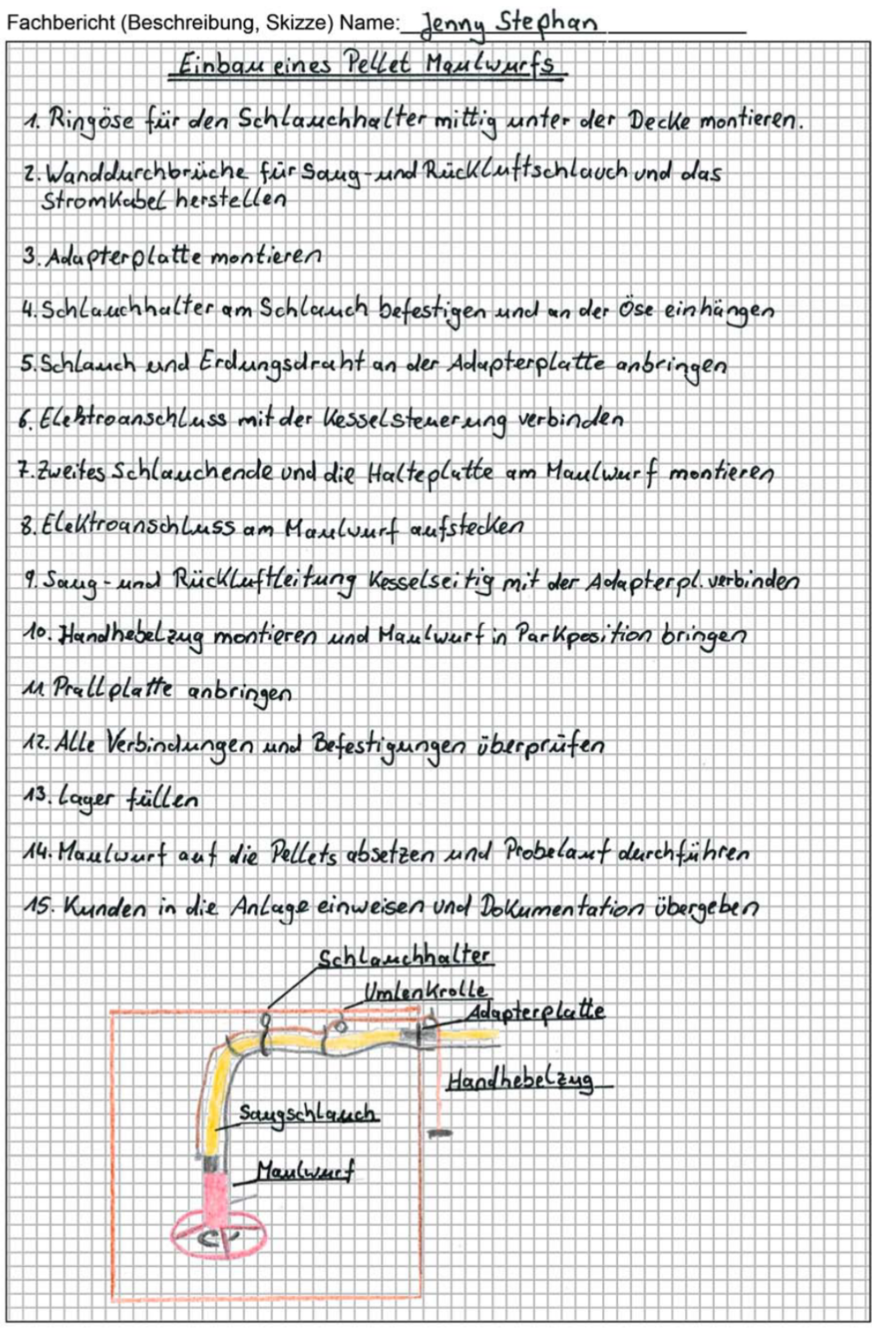 Fachbericht (Beschreibung, Skizze) Name: Jenny Stephan
Einbau eines Pellet Maulwurfs
1. Ringöse für den Schlauchhalter mittig unter der Decke montieren.
2. Wanddurchbrüche für Saug- und Rückluftschlauch und das
Stromkabel herstellen
3. Adapterplatte montieren
4. Schlauchhalter am Schlauch befestigen und an der Öse einhängen
5. Schlauch und Erdungsdraht an der Adapterplatte anbringen
6. Elektroanschluss mit der Kesselsteuerung verbinden
7. Zweites Schlauchende und die Halteplatte am Maulwurf montieren
8. Elektroanschluss am Maulwurf aufstecken
9. Saug- und Rückluftleitung Kesselseitig mit der Adapterpl. verbinden
10. Handhebelzug montieren und Maulwurf in Parkposition bringen
11 Prallplatte anbringen
12. Alle Verbindungen und Befestigungen überprüfen
13. Lager füllen
14. Maulwurf auf die Pellets absetzen und Probelauf durchführen
15. Kunden in die Anlage einweisen und Dokumentation übergeben
Schlauchhalter
Umlenkrolle
Adapterplatte
Handhebelzug
Saugschlauch
Maulwurf